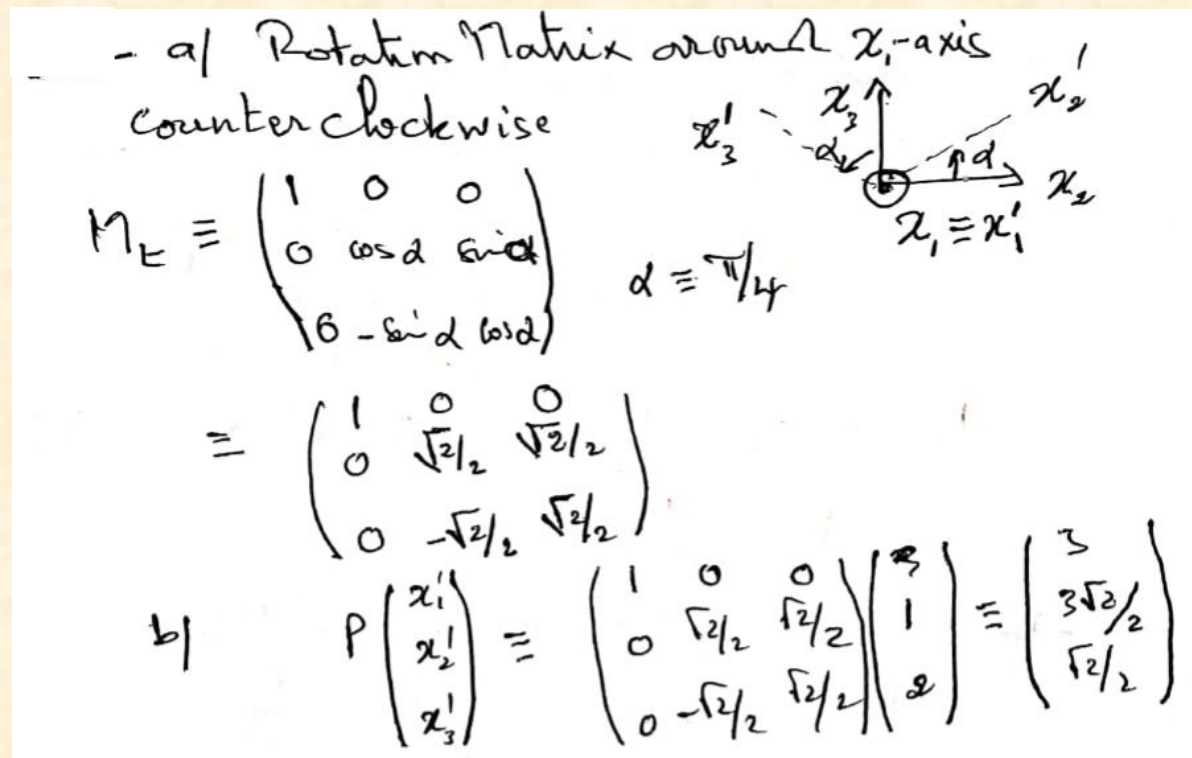 - a/ Rotation Matrix around x₁-axis
counterclockwise
x₃ x₃' x₂'
α α x₂
x₁ ≡ x₁'
M_t ≡ ( 1 0 0
0 cos α sin α
0 -sin α cos α )
α ≡ π/4
≡ ( 1 0 0
0 √2/2 √2/2
0 -√2/2 √2/2 )
b/ P ( x₁' x₂' x₃' ) ≡ ( 1 0 0
0 √2/2 √2/2
0 -√2/2 √2/2 ) ( 3 1 2 ) ≡ ( 3 3√2/2 √2/2 )